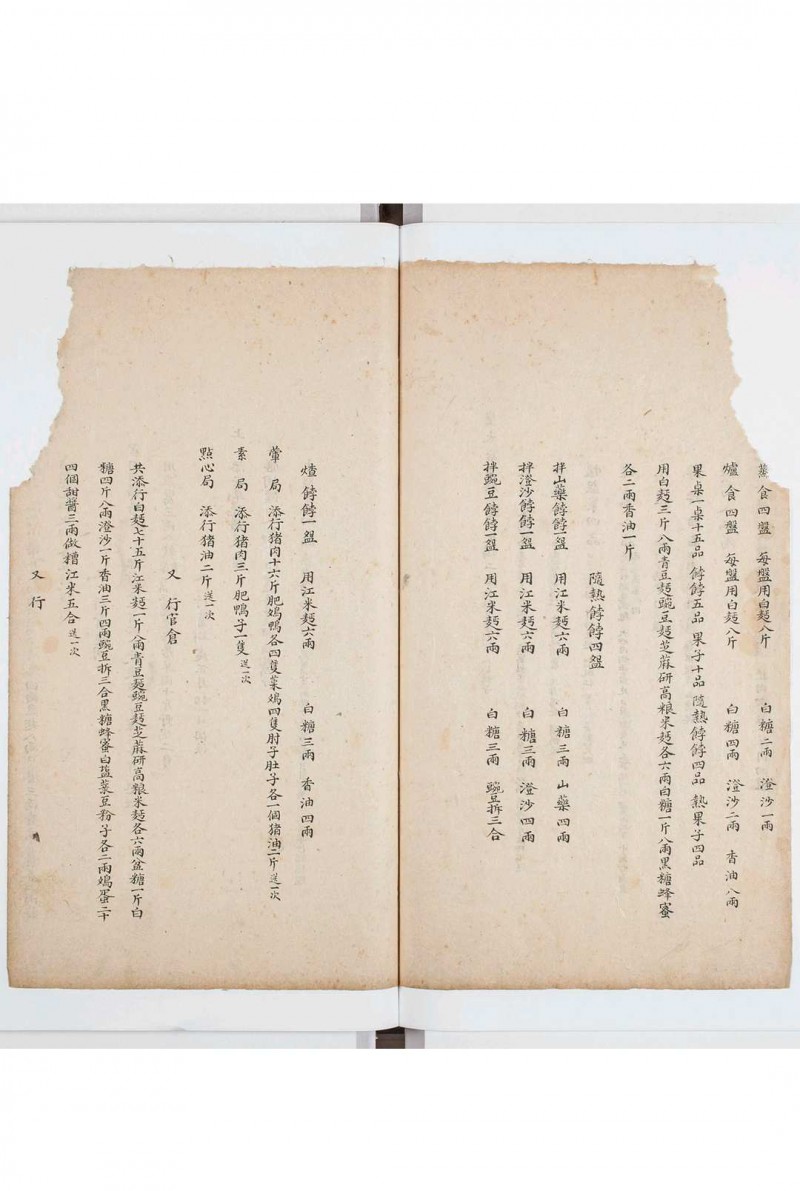 蒸食四盤　每盤用白麪八斤　白糖二兩　澄沙一兩
爐食四盤　每盤用白麪八斤　白糖四兩　澄沙二兩　香油八兩
果桌一桌十五品　餑餑五品　果子十品　隨熱餑餑四品　熱果子四品
用白麪三斤八兩青豆麪豌豆麪芝蔴研高粮米麪各六兩白糖一斤八兩黑糖蜂蜜
各二兩香油一斤
隨熱餑餑四盌
拌山藥餑餑一盌　用江米麪六兩　白糖三兩　山藥四兩
拌澄沙餑餑一盌　用江米麪六兩　白糖三兩　澄沙四兩
拌豌豆餑餑一盌　用江米麪六兩　白糖三兩　豌豆拆三合
餑餑一盌　用江米麪六兩　白糖三兩　香油四兩
葷局　添行猪肉十六斤肥鷄鴨各四隻菜鷄四隻肘子肚子各一個猪油二斤送一次
素局　添行猪肉三斤肥鴨子一隻送一次
點心局　添行猪油二斤送一次
又　行官倉
共添行白麪七十五斤江米麪一斤八兩青豆麪豌豆麪芝蔴研高粮米麪各六兩盆糖一斤白
糖四斤八兩澄沙一斤香油三斤四兩豌豆拆三合黑糖蜂蜜白盐菉豆粉子各二兩鷄蛋二十
四個甜醬三兩做糟江米五合送一次
又行